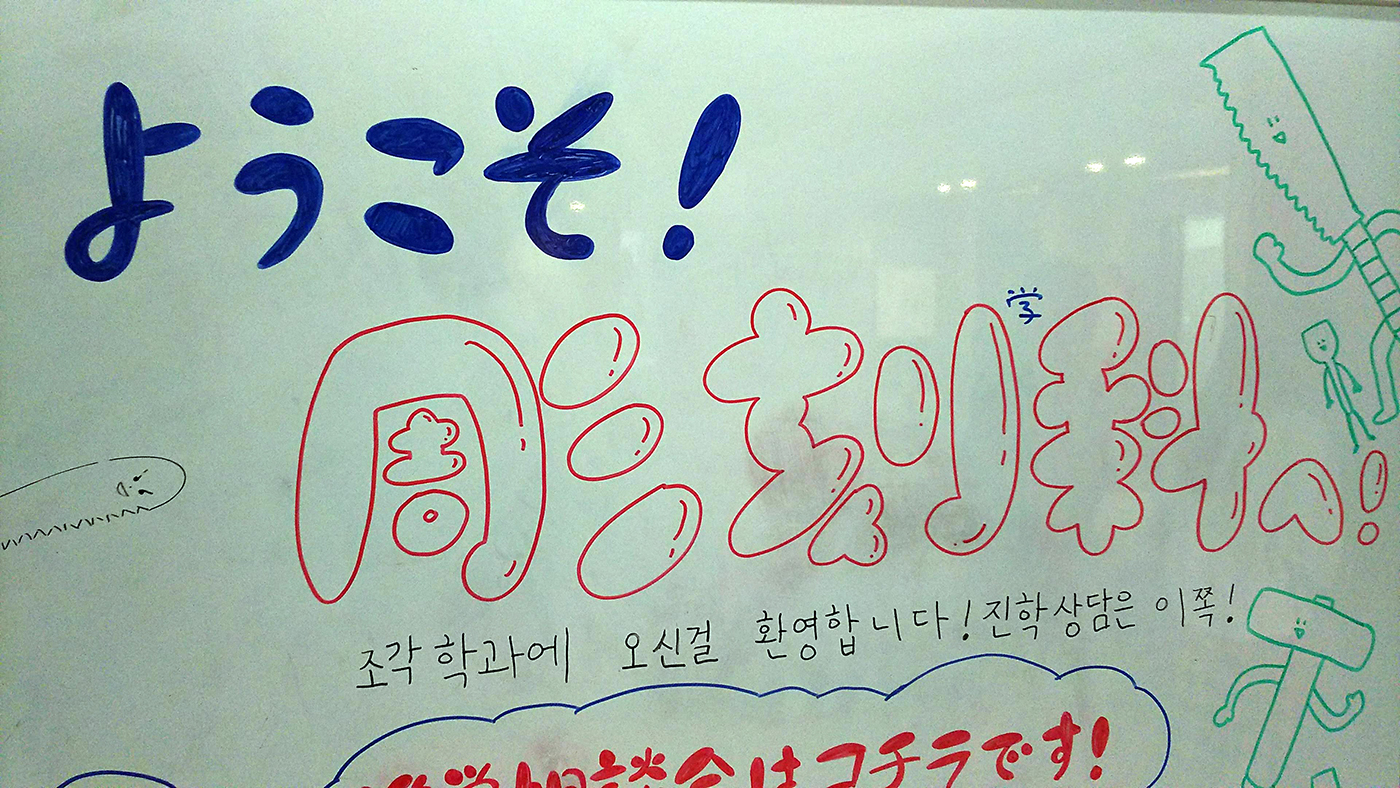 ようこそ!
彫刻学科へ!
조각 학과에 오신걸 환영합니다! 진학 상담은 이쪽!
進学相談会はコチラです!